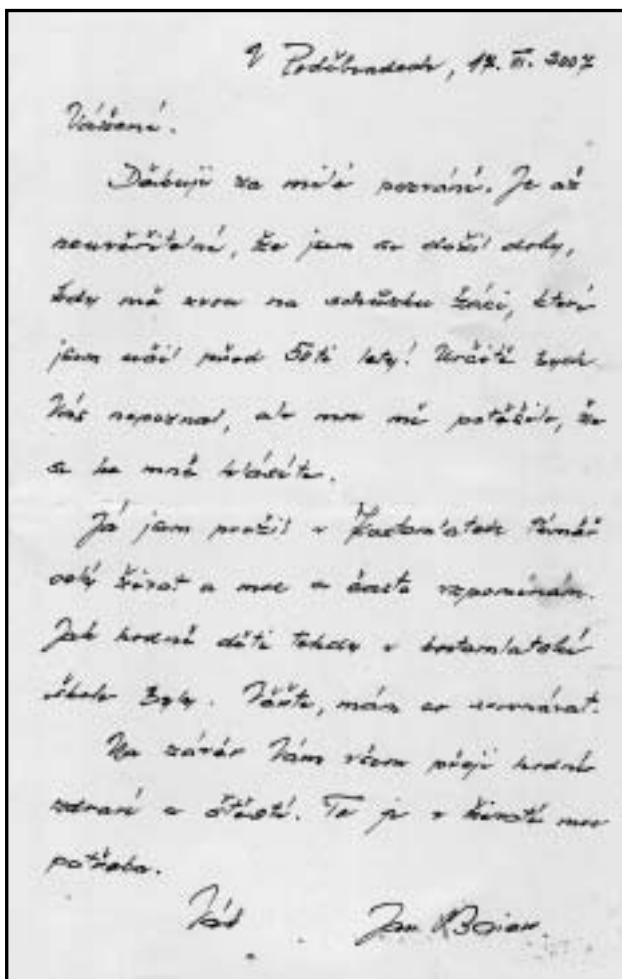 V Poděbradech, 17. XI. 2007
Vážení.
Děkuji za milé pozvání. Je až
neuvěřitelné, že jsem se dožil doby,
kdy mě zvou na schůzku žáci, které
jsem učil před 50ti lety! Určitě bych
Vás nepoznal, ale moc mě potěšilo, že
se ke mně hlásíte.
Já jsem prožil v Kostomlatech téměř
celý život a moc a často vzpomínám.
Jak hodné děti tehdy v kostomlatské
škole byly. Věřte, mám co srovnávat.
Na závěr Vám všem přeji hodně
zdraví a štěstí. To je v životě moc
potřeba.
Váš Jan